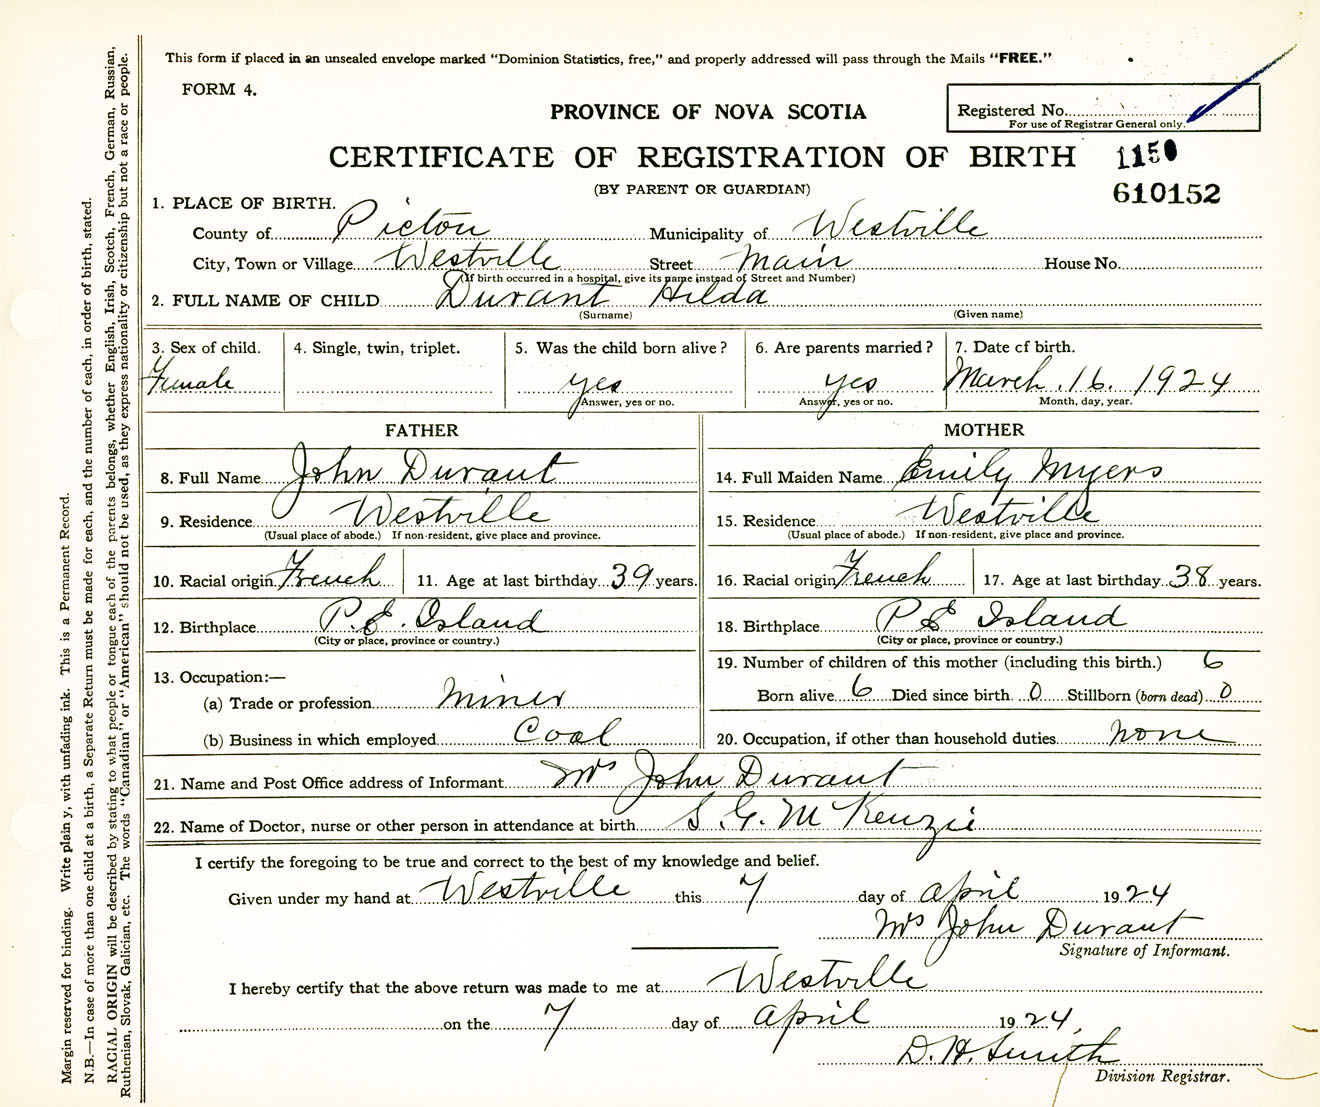 This form if placed in an unsealed envelope marked “Dominion Statistics, free,” and properly addressed will pass through the Mails “FREE.”
FORM 4.
PROVINCE OF NOVA SCOTIA
Registered No.
For use of Registrar General only.
CERTIFICATE OF REGISTRATION OF BIRTH 1150
(BY PARENT OR GUARDIAN) 610152
1. PLACE OF BIRTH.
County of Pictou Municipality of Westville
City, Town or Village Westville Street Main House No.
(If birth occurred in a hospital, give its name instead of Street and Number)
2. FULL NAME OF CHILD Durant Hilda
(Surname) (Given name)
3. Sex of child. 4. Single, twin, triplet. 5. Was the child born alive? 6. Are parents married? 7. Date of birth.
Female yes yes March. 16. 1924
Answer, yes or no. Answer, yes or no. Month, day, year.
FATHER MOTHER
8. Full Name John Durant 14. Full Maiden Name Emily Myers
9. Residence Westville 15. Residence Westville
(Usual place of abode.) If non-resident, give place and province. (Usual place of abode.) If non-resident, give place and province.
10. Racial origin French 11. Age at last birthday 39 years. 16. Racial origin French 17. Age at last birthday 38 years.
12. Birthplace P.E. Island 18. Birthplace P E Island
(City or place, province or country.) (City or place, province or country.)
19. Number of children of this mother (including this birth.) 6
13. Occupation:—
(a) Trade or profession Miner Born alive 6 Died since birth 0 Stillborn (born dead) 0
(b) Business in which employed Coal 20. Occupation, if other than household duties none
21. Name and Post Office address of Informant Mrs John Durant
22. Name of Doctor, nurse or other person in attendance at birth S. G. McKenzie
I certify the foregoing to be true and correct to the best of my knowledge and belief.
Given under my hand at Westville this 7 day of April 1924
Mrs John Durant
Signature of Informant.
I hereby certify that the above return was made to me at Westville
on the 7 day of April 1924,
D. H. Smith
Division Registrar.
Margin reserved for binding. Write plain y, with unfading ink. This is a Permanent Record.
N.B.—In case of more than one child at a birth, a Separate Return must be made for each, and the number of each, in order of birth, stated.
RACIAL ORIGIN will be described by stating to what people or tongue each of the parents belongs, whether English, Irish, Scotch, French, German, Russian,
Ruthenian, Slovak, Galician, etc. The words “Canadian” or “American” should not be used, as they express nationality or citizenship but not a race or people.